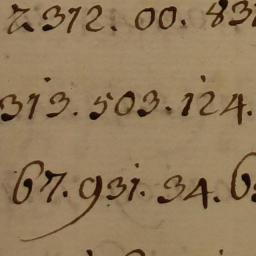 2312. 00. 83
313. 503. 124.
67. 931. 34. 6